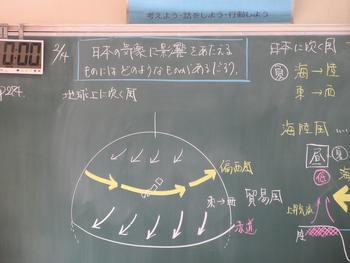 考えよう・話をしよう・行動しよう
0:00
2/14
日本の気象に影響をあたえる
ものにはどのようなものがあるだろう。
P.224
地球上に吹く風
偏西風
東→西 貿易風
赤道
日本に吹く風
夏 海→陸
東→西
海陸風
昼
低
上昇気流
陸